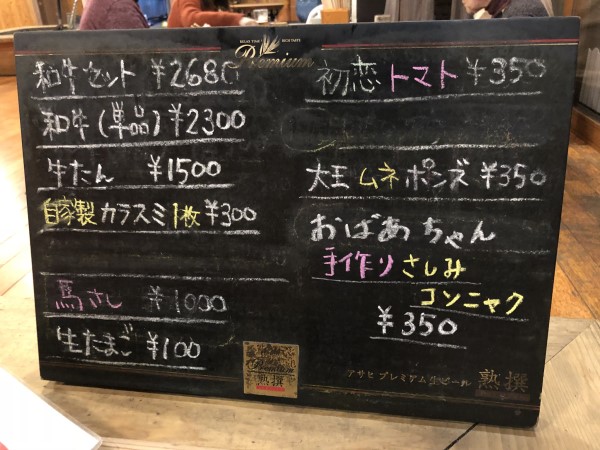 RELAX TIME RICH TASTE
Premium
和牛セット ¥2680
和牛(単品) ¥2300
牛たん ¥1500
自家製カラスミ1枚¥300
馬さし ¥1000
生たまご ¥100
初恋トマト ¥350
大王ムネポンズ¥350
おばあちゃん
手作りさしみ
コンニャク
¥350
熟撰
アサヒ プレミアム生ビール 熟撰